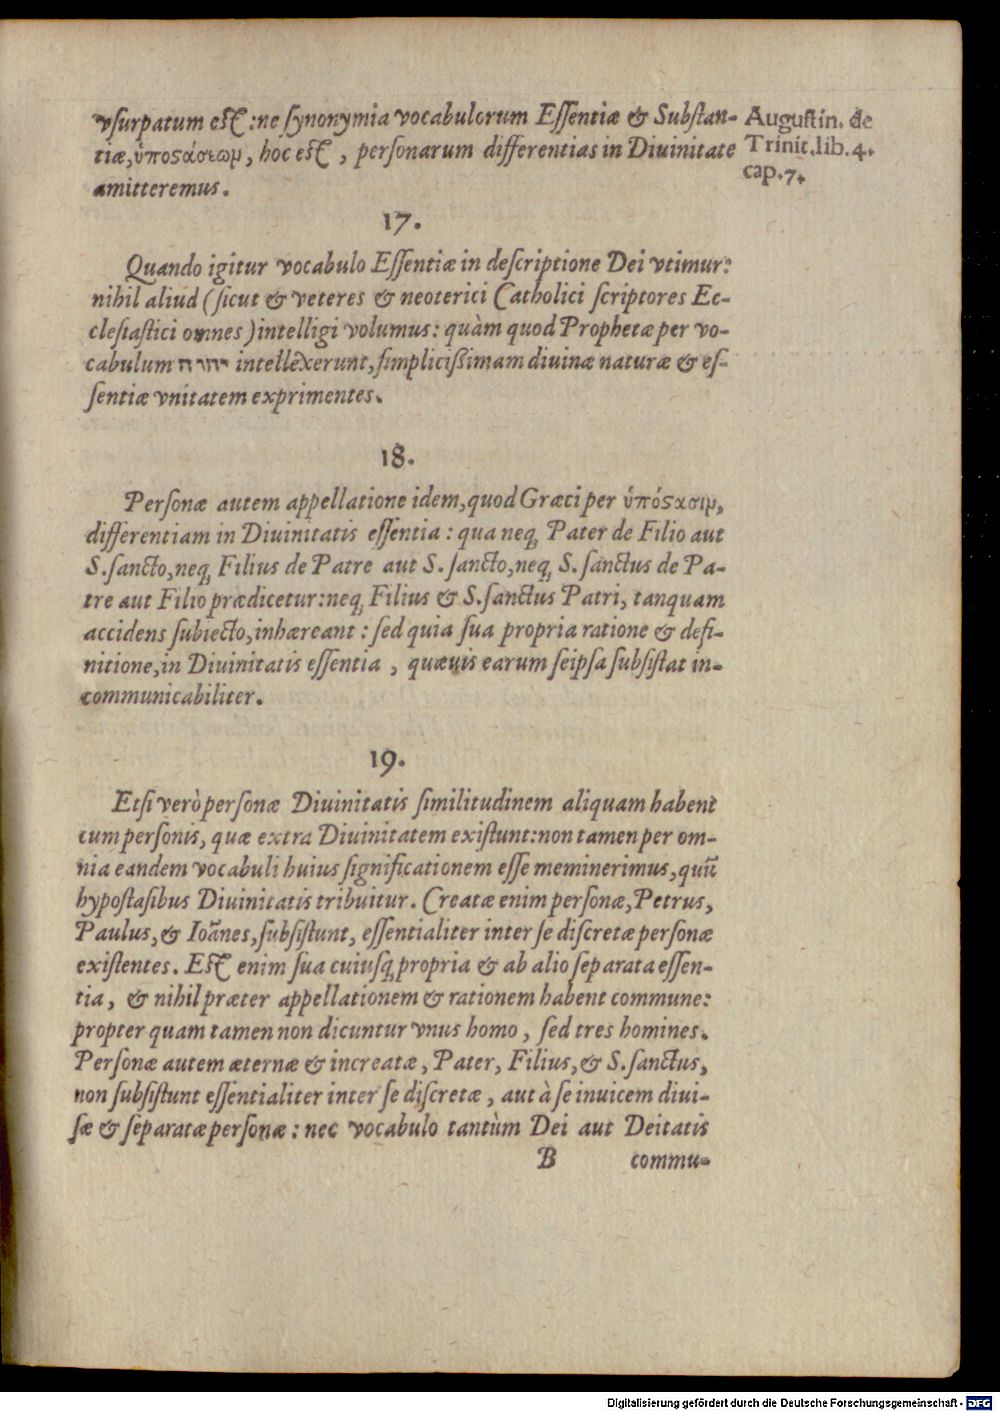 vſurpatum eſt: ne ſynonymia vocabulorum Eſſentiæ & Subſtan-
tiæ, ὑποςάσεωμ, hoc eſt, perſonarum differentias in Diuinitate
amitteremus.
Auguſtin. de
Trinit. lib. 4.
cap. 7.
17.
Quando igitur vocabulo Eſſentiæ in deſcriptione Dei vtimur:
nihil aliud (ſicut & veteres & neoterici Catholici ſcriptores Ec-
cleſiaſtici omnes) intelligi volumus: quàm quod Prophetæ per vo-
cabulum יהוה intellexerunt, ſimplicißimam diuinæ naturæ & eſ-
ſentiæ vnitatem exprimentes.
18.
Perſonæ autem appellatione idem, quod Græci per ὑπόςασιμ,
differentiam in Diuinitatis eſſentia: qua neq; Pater de Filio aut
S. ſancto, neq; Filius de Patre aut S. ſancto, neq; S. ſanctus de Pa-
tre aut Filio prædicetur: neq; Filius & S. ſanctus Patri, tanquam
accidens ſubiecto, inhæreant: ſed quia ſua propria ratione & defi-
nitione, in Diuinitatis eſſentia, quæuis earum ſeipſa ſubſiſtat in-
communicabiliter.
19.
Etſi verò perſonæ Diuinitatis ſimilitudinem aliquam habent
cum perſonis, quæ extra Diuinitatem exiſtunt: non tamen per om-
nia eandem vocabuli huius ſignificationem eſſe meminerimus, quū
hypoſtaſibus Diuinitatis tribuitur. Creatæ enim perſonæ, Petrus,
Paulus, & Ioānes, ſubſiſtunt, eſſentialiter inter ſe diſcretæ perſonæ
exiſtentes. Eſt enim ſua cuiuſq; propria & ab alio ſeparata eſſen-
tia, & nihil præter appellationem & rationem habent commune:
propter quam tamen non dicuntur vnus homo, ſed tres homines.
Perſonæ autem æternæ & increatæ, Pater, Filius, & S. ſanctus,
non ſubſiſtunt eſſentialiter inter ſe diſcretæ, aut à ſe inuicem diui-
ſæ & ſeparatæ perſonæ: nec vocabulo tantùm Dei aut Deitatis
B commu-
Digitalisierung gefördert durch die Deutsche Forschungsgemeinschaft - DFG